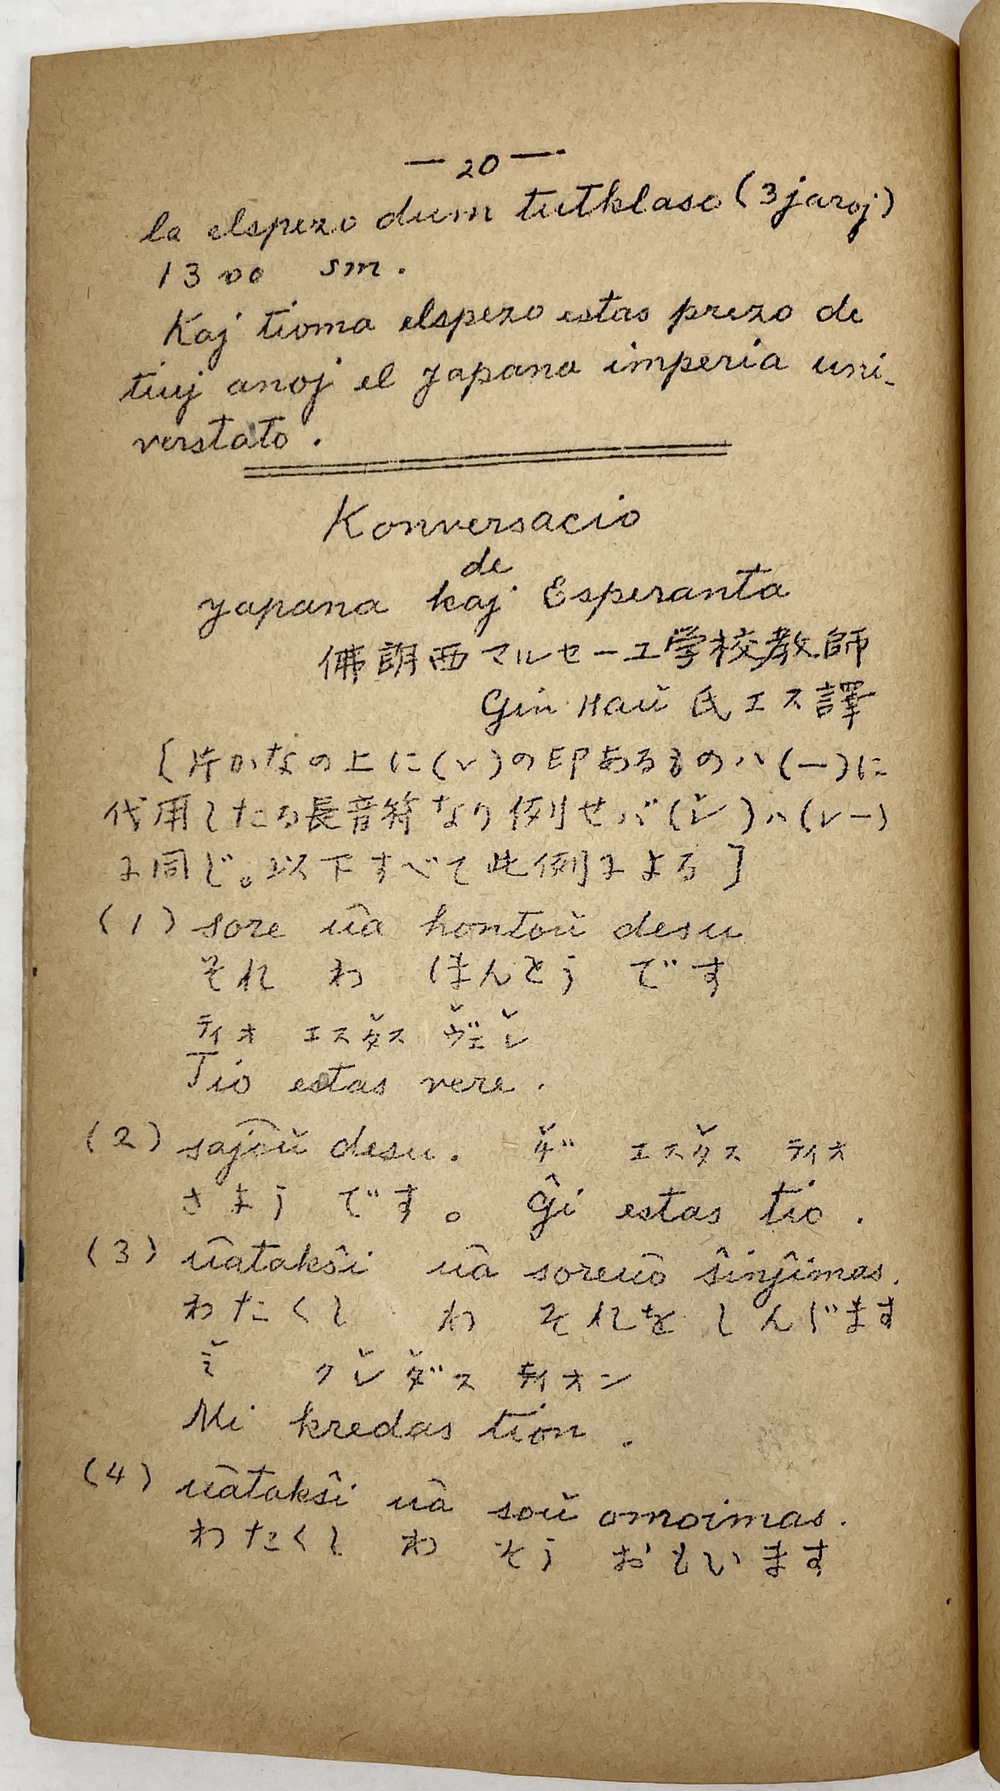 — 20 —
la elspezo dum tutklaso (3 jaroj)
1300 sm.
Kaj tioma elspezo estas prezo de
tiuj anoj el yapana imperia uni-
verstato.
Konversacio
de
yapana kaj Esperanta
佛朗西マルセーユ学校教師
Gin Haŭ 氏エス譯
[片かなの上に(v)の印あるものハ(ー)に
代用したる長音符なり例せバ(レ̌)ハ(レー)
に同じ。以下すべて此例による]
(1) sore ûa hontoŭ desu
それ わ ほんとう です
ティオ エスタ̌ス ヴェ̌レ̌
Tio estas vere.
(2) sajoŭ desu. ヂ̌ エスタ̌ス ティオ
さよう です。 Ĝi estas tio.
(3) ûatakŝi ûa soreûo ŝinĵimas.
わたくし わ それを しんじます
ミ̌ クレ̌ダ̌ス ティオン
Mi kredas tion.
(4) ûatakŝi ûa soŭ omoimas.
わたくし わ そう おもいます